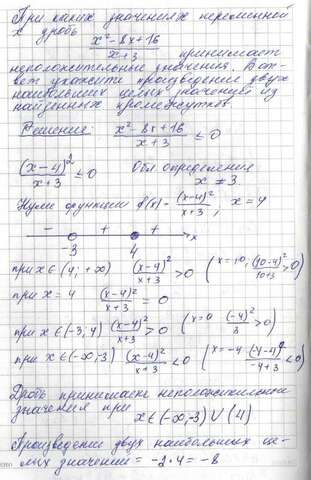 При каких значениях переменной
х дробь (x²-8x+16)/(x+3) принимает
неположительные значения. В от-
вет укажите произведение двух
наибольших целых значений из
найденных промежутков
Решение: (x²-8x+16)/(x+3) ≤ 0
(x-4)²/(x+3) ≤ 0 Обл. определения
x ≠ 3.
Нули функции f(x) = (x-4)²/(x+3); x = 4
- + + x
-3 4
при x∈(4; +∞) (x-4)²/(x+3) > 0 (x=10, (10-4)²/(10+3) > 0)
при x = 4 (x-4)²/(x+3) = 0
при x∈(-3; 4) (x-4)²/(x+3) > 0 (x=0 (-4)²/3 > 0)
при x∈(-∞;-3) (x-4)²/(x+3) < 0 (x=-4 (-4-4)²/(-4+3) < 0)
Дробь принимает неположительные
значения при
x∈(-∞,-3) ∪ {4}
Произведение двух наибольших це-
лых значений = -2·4 = -8